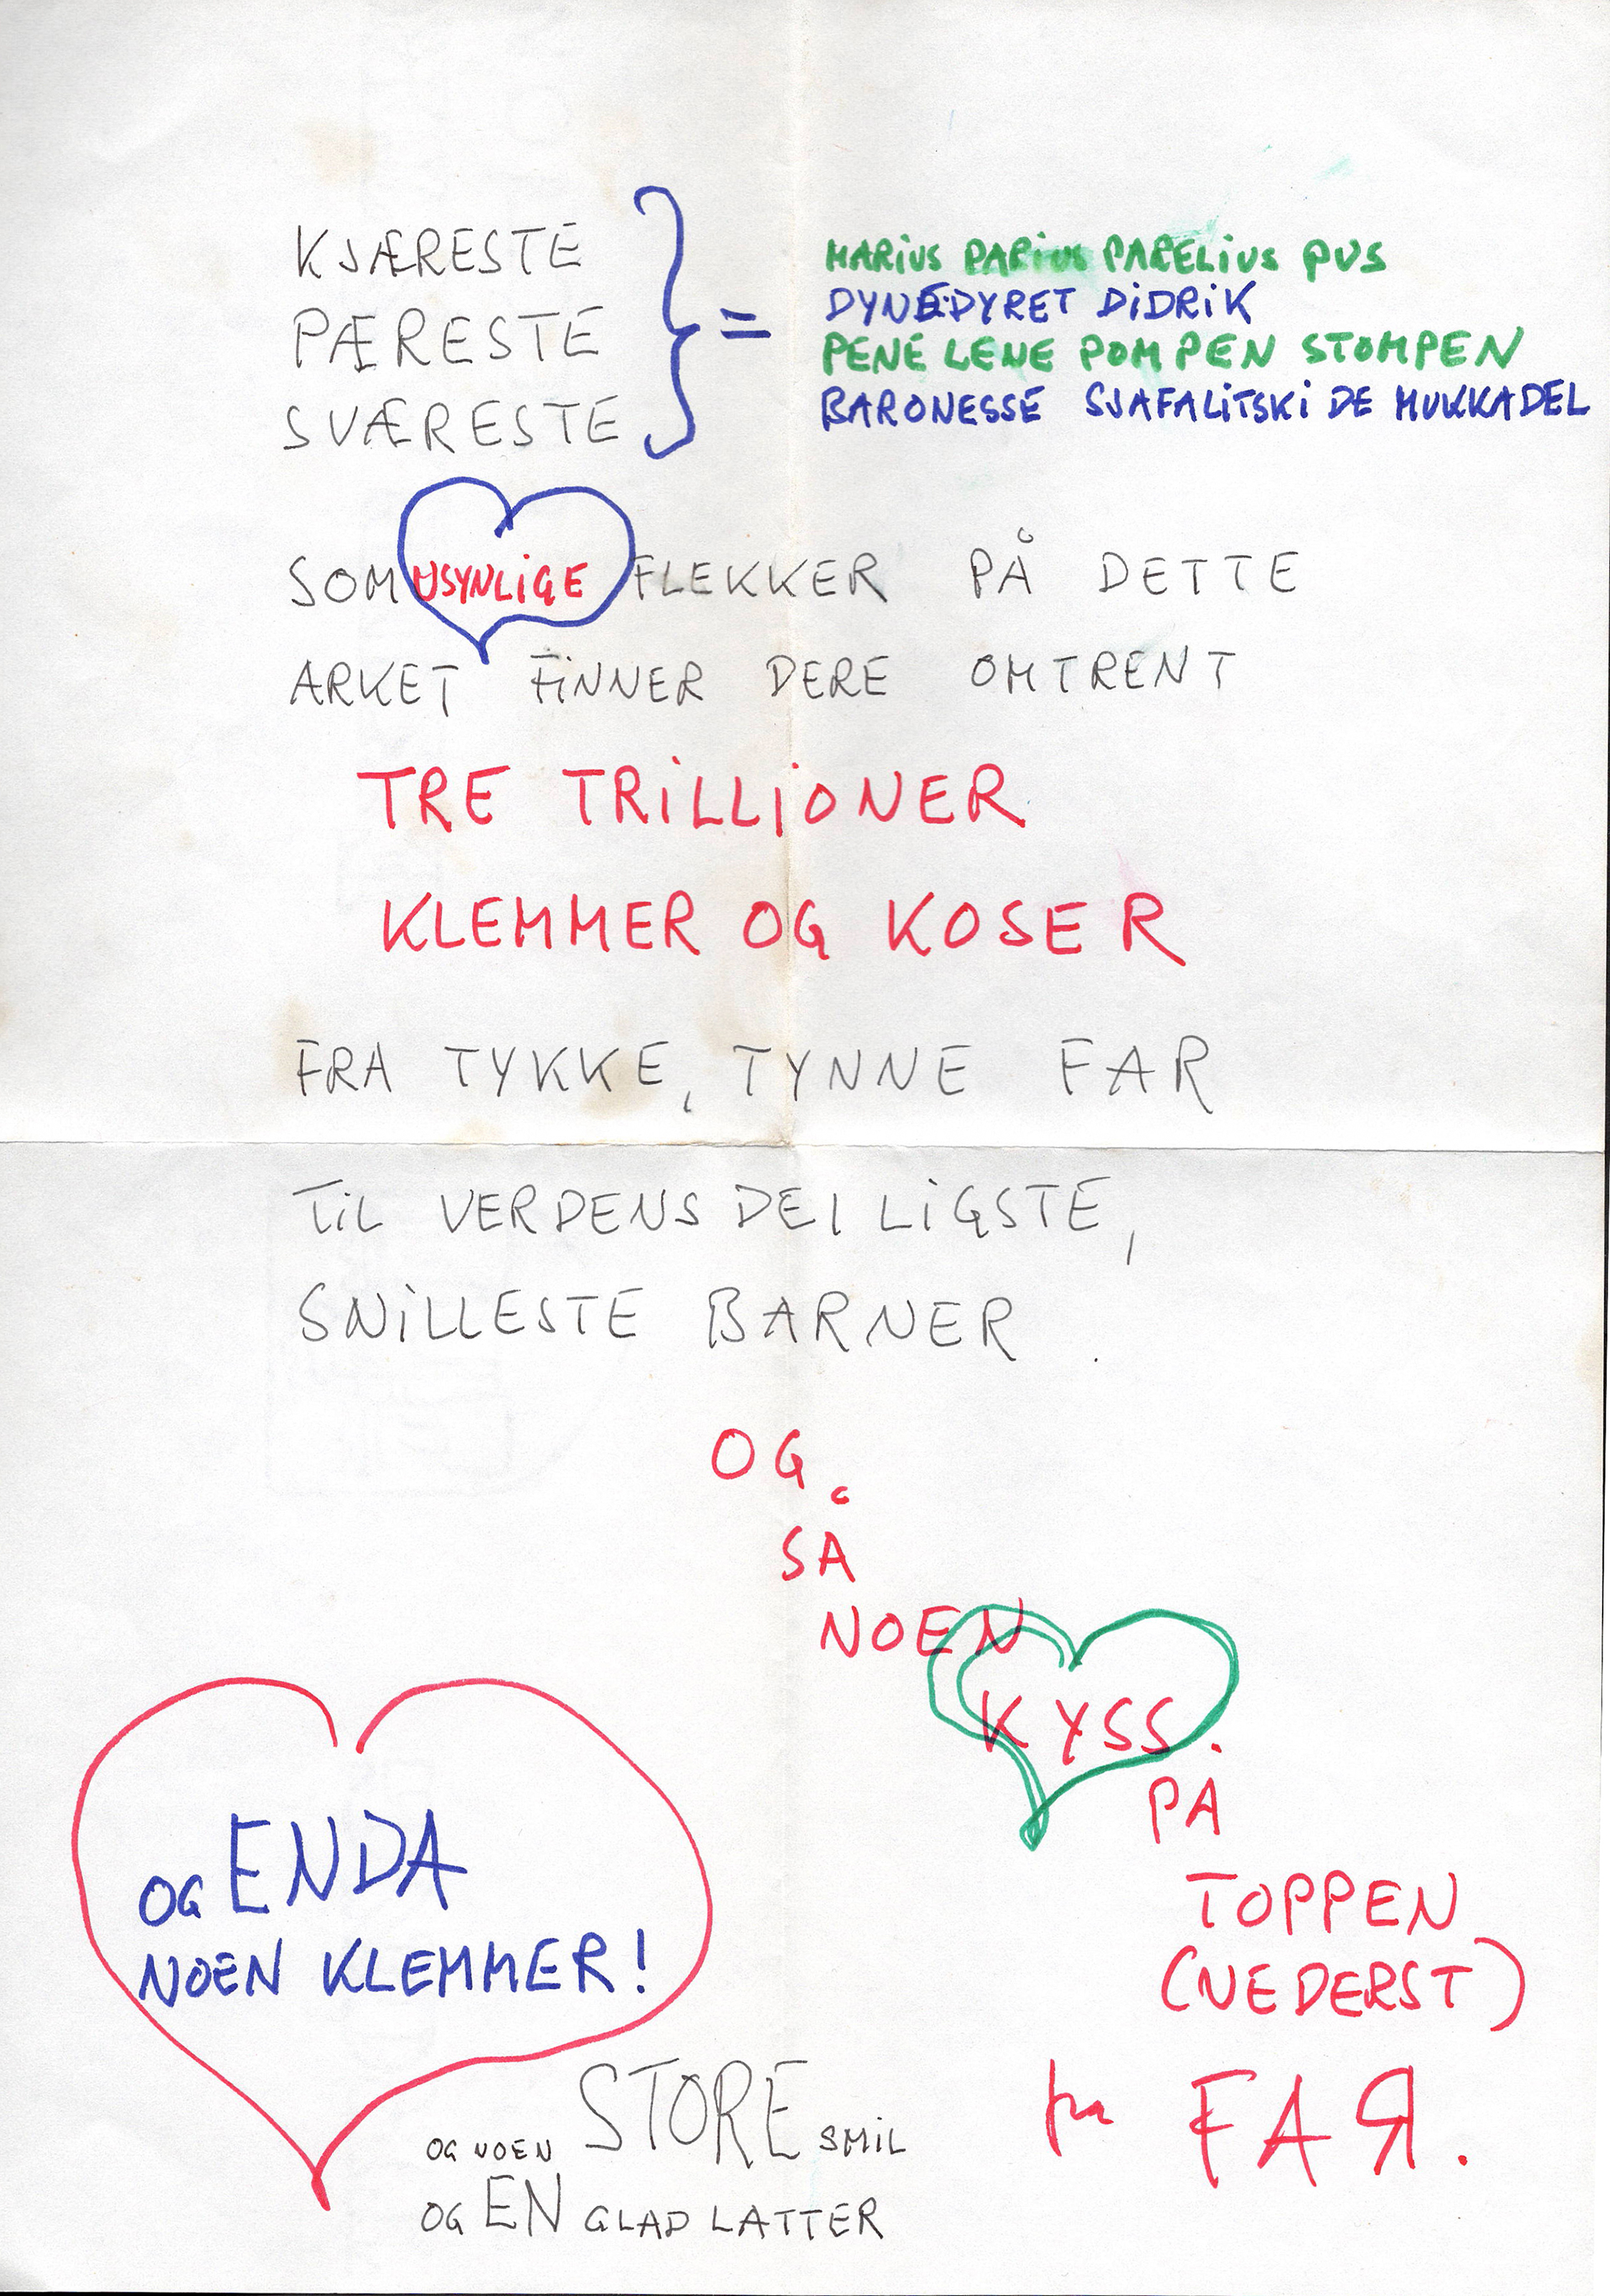 KJÆRESTE
PÆRESTE
SVÆRESTE
} =
MARiUS PARiUS PARELiUS PUS
DYNEDYRET DiDRiK
PENE LENE POMPEN STOMPEN
BARONESSE SJAFALiTSKi DE MUKKADEL
SOM USYNLiGE FLEKKER PÅ DETTE
ARKET FiNNER DERE OMTRENT
TRE TRiLLiONER
KLEMMER OG KOSER
FRA TYKKE, TYNNE FAR
TiL VERDENS DEILiGSTE,
SNiLLESTE BARNER.
OG
SÅ
NOEN
KYSS
PÅ
TOPPEN
(NEDERST)
fra FAЯ.
OG ENDA
NOEN KLEMMER!
OG NOEN STORE SMiL
OG EN GLAD LATTER